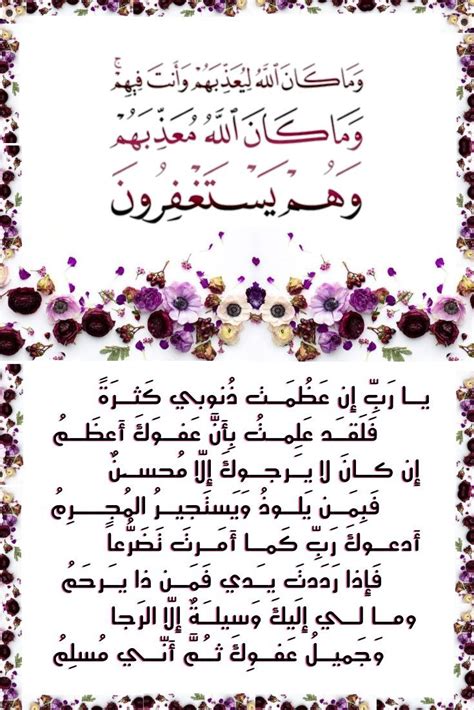 وَمَا كَانَ ٱللَّهُ لِيُعَذِّبَهُمْ وَأَنتَ فِيهِمْۚ
وَمَا كَانَ ٱللَّهُ مُعَذِّبَهُمْ
وَهُمْ يَسْتَغْفِرُونَ
يا رَبِّ إن عَظُمَت ذُنوبي كَثرَةً
فَلَقَد عَلِمتُ بِأَنَّ عَفوَكَ أَعظَمُ
إن كانَ لا يَرجوكَ إلّا مُحسنٌ
فَبِمَن يَلوذُ وَيَستَجيرُ المُجرِمُ
أَدعوكَ رَبِّ كَما أَمَرتَ تَضَرُّعاً
فَإِذا رَدَدتَ يَدي فَمَن ذا يَرحَمُ
وما لي إلَيكَ وَسيلَةٌ إلّا الرَجا
وَجَميلُ عَفوِكَ ثُمَّ أَنّي مُسلِمُ